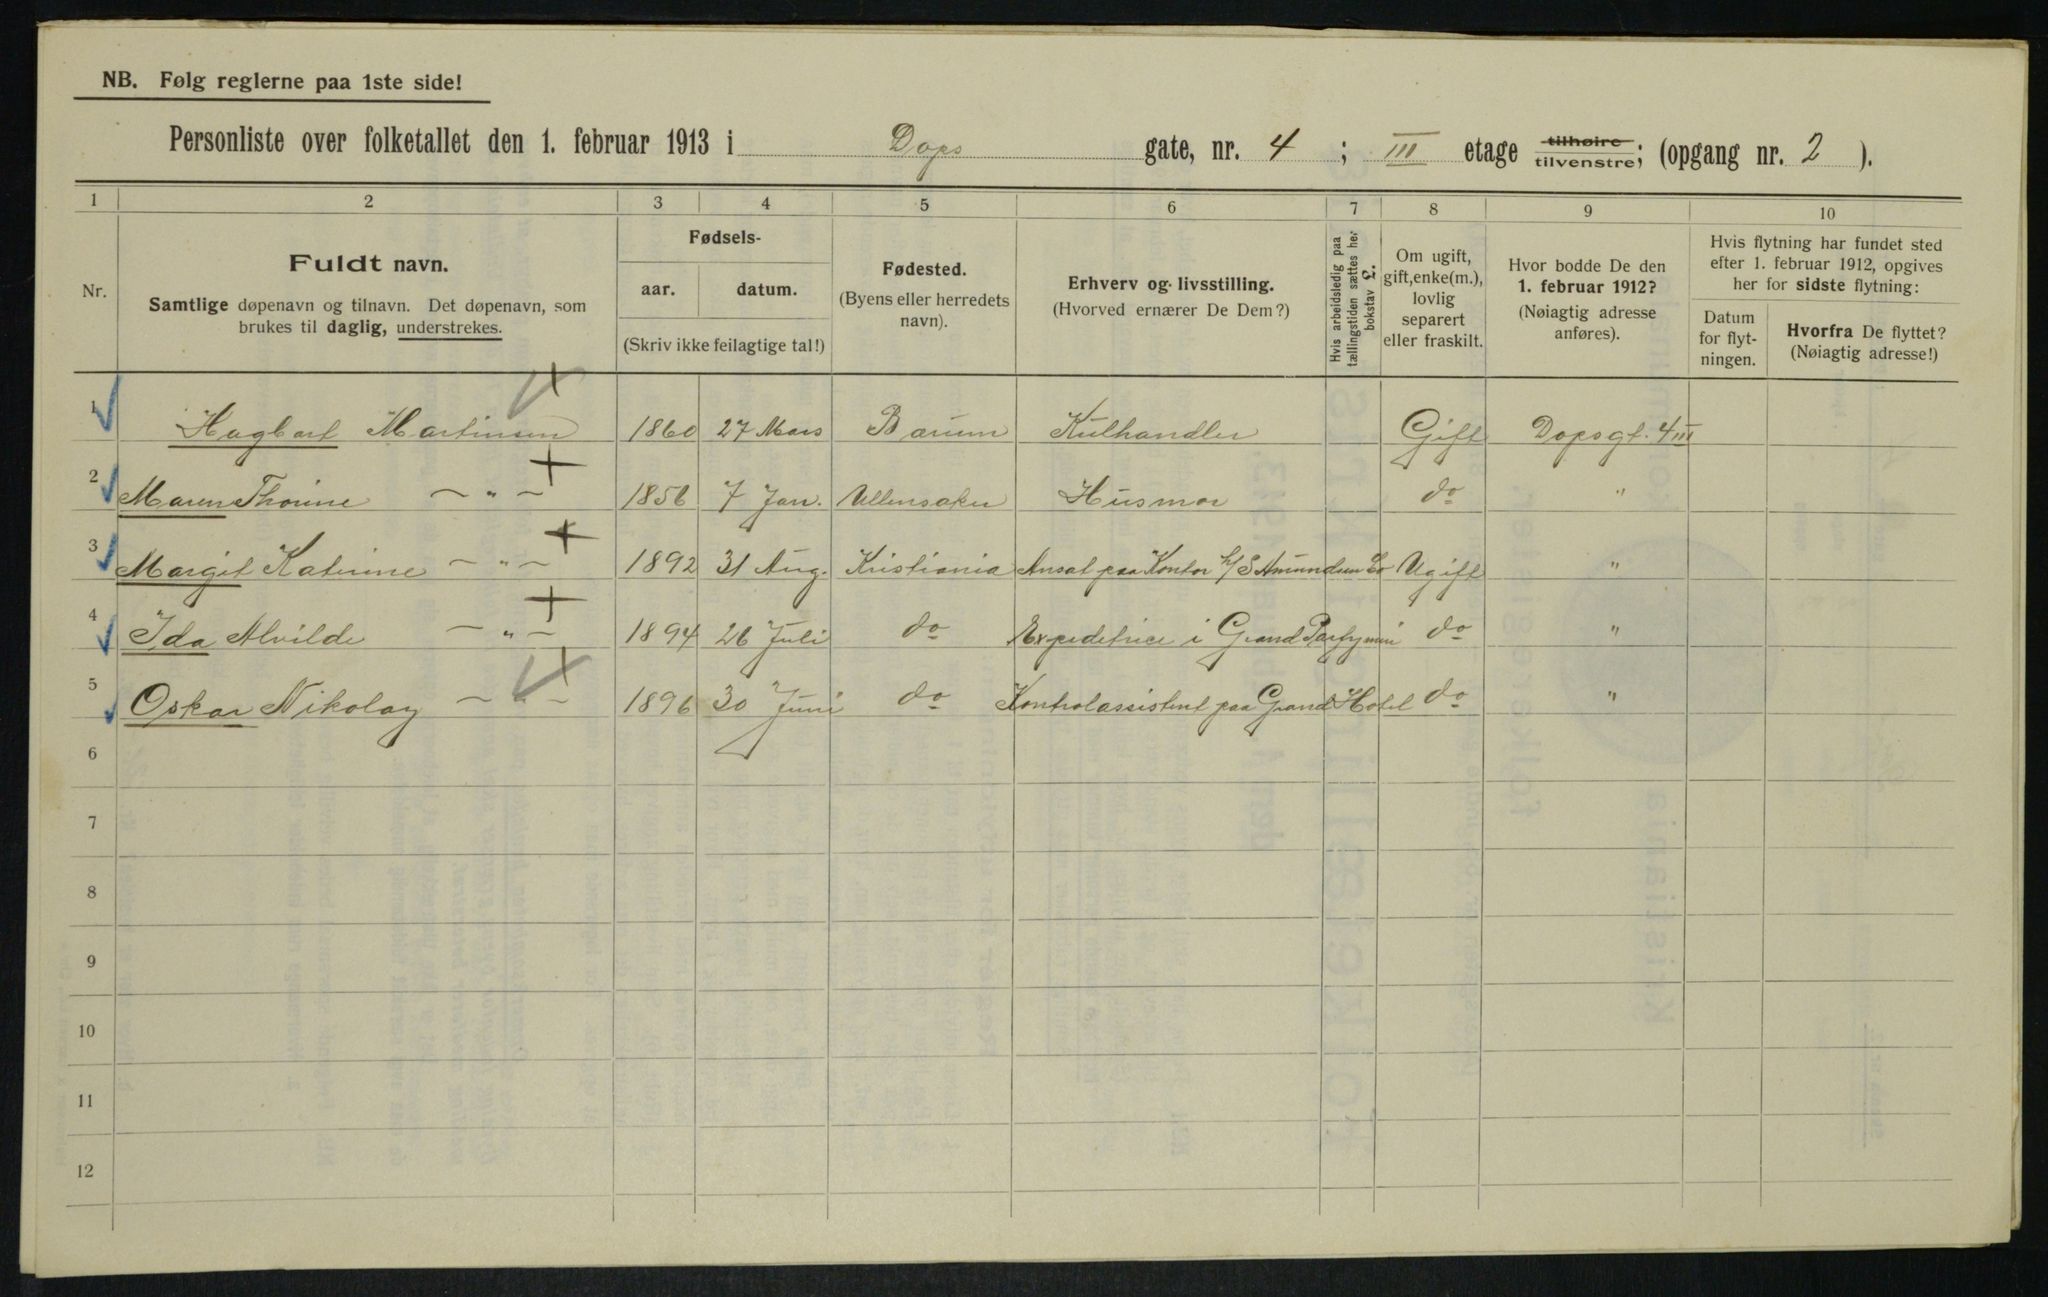 NB. Følg reglerne paa 1ste side!
Personliste over folketallet den 1. februar 1913 i Dops gate, nr. 4 ; III etage tilhøire tilvenstre; (opgang nr. 2 ).
1 2 3 4 5 6 7 8 9 10
Nr.
Fuldt navn.
Samtlige døpenavn og tilnavn. Det døpenavn, som
brukes til daglig, understrekes.
Fødsels-
aar. datum.
(Skriv ikke feilagtige tal!)
Fødested.
(Byens eller herredets
navn).
Erhverv og livsstilling.
(Hvorved ernærer De Dem?)
Hvis arbeidsledig paa
tællingstiden sættes her
bokstav L.
Om ugift,
gift, enke(m.),
lovlig
separert
eller fraskilt.
Hvor bodde De den
1. februar 1912?
(Nøiagtig adresse
anføres).
Hvis flytning har fundet sted
efter 1. februar 1912, opgives
her for sidste flytning:
Datum
for flyt-
ningen.
Hvorfra De flyttet?
(Nøiagtig adresse!)
1 Hagbart Martinsen 1860 27 Mars Bærum Kulhandler Gift Dopsgt. 4 III
2 Maren Thorine — " — 1856 7 Jan. Ullensaker Husmor do "
3 Margit Katrine — " — 1892 31 Aug. Kristiania Ansat paa Kontor h/ S Amundsen Co Ugift "
4 Ida Alvilde — " — 1894 26 Juli do Expeditrice i Grand Parfymeri do "
5 Oskar Nikolay — " — 1896 30 Juni do Kontrolassistent paa Grand Hotel do "
6
7
8
9
10
11
12